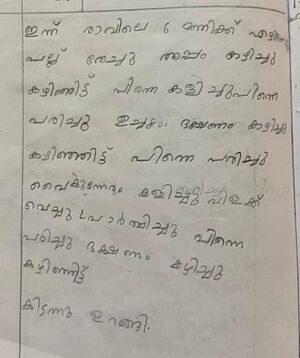 ഇന്ന് രാവിലെ 6 മണിക്ക്
പല്ല് തേച്ചു അപ്പം കഴിച്ചു
കഴിഞ്ഞിട്ട് പിന്നെ കളിച്ചു പിന്നെ
പഠിച്ചു ഉച്ചക്ക ഭക്ഷണം കഴിച്ചു
കഴിഞ്ഞിട്ട് പിന്നെ പഠിച്ചു
വൈകുന്നേരം കളിച്ചു വിളക്ക്
വെച്ചു പ്രാർത്ഥിച്ചു പിന്നെ
പഠിച്ചു ഭക്ഷണം കഴിച്ചു
കഴിഞ്ഞിട്ട്
കിടന്നു ഉറങ്ങി.